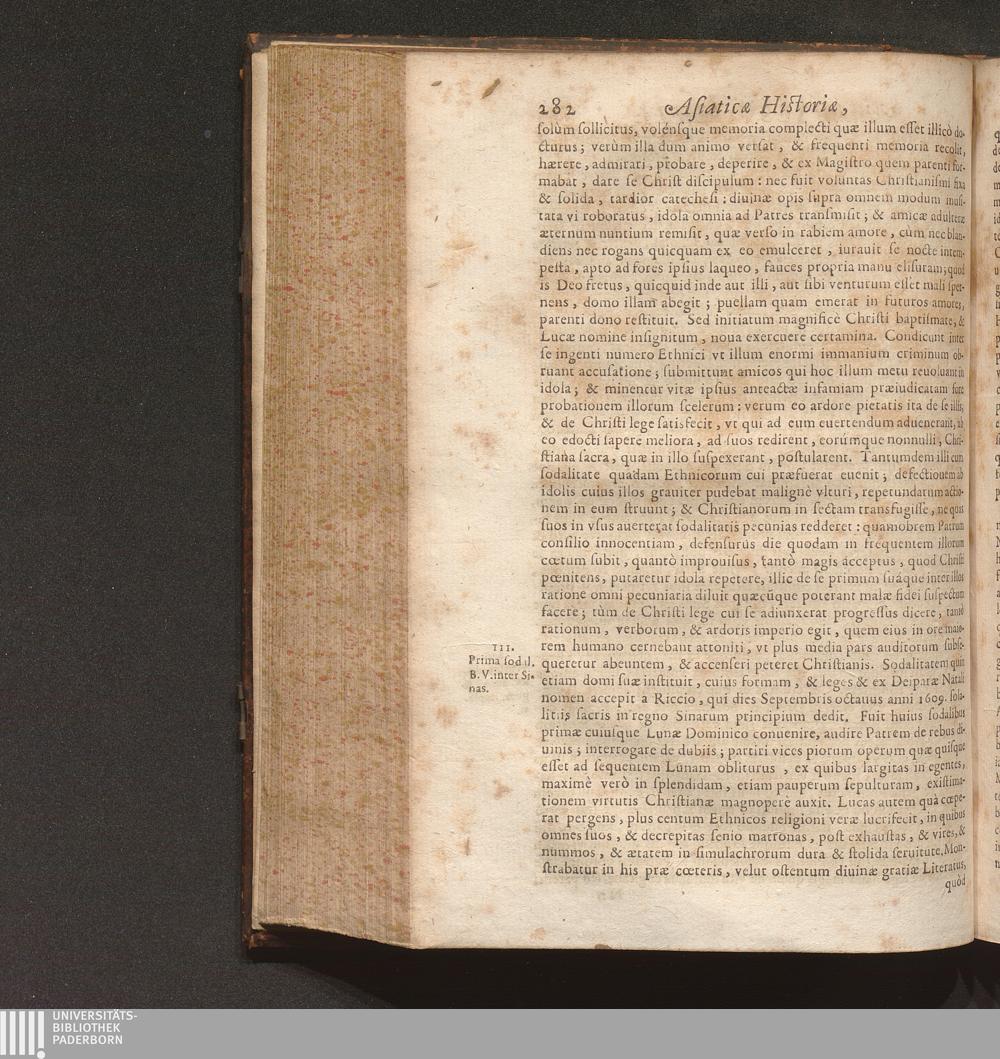 282 Asiaticæ Historiæ,
solùm sollicitus, volénsque memoria complecti quæ illum esset illicò do-
cturus; verùm illa dum animo versat, & frequenti memoria recolit,
hærere, admirari, probare, deperire, & ex Magistro quem parenti for-
mabat, dare se Christ discipulum: nec fuit voluntas Christianismi fixa
& solida, tardior catechesi: diuinæ opis supra omnem modum inusi-
tata vi roboratus, idola omnia ad Patres transmisit; & amicæ adulteræ
æternum nuntium remisit, quæ verso in rabiem amore, cùm nec blan-
diens nec rogans quicquam ex eo emulceret, iurauit se nocte intem-
pesta, apto ad fores ipsius laqueo, fauces propria manu elisuram; quod
is Deo fretus, quicquid inde aut illi, aut sibi venturum esset mali sper-
nens, domo illam abegit; puellam quam emerat in futuros amores,
parenti dono restituit. Sed initiatum magnificè Christi baptismate, &
Lucæ nomine insignitum, noua exercuere certamina. Condicunt inter
se ingenti numero Ethnici vt illum enormi immanium criminum ob-
ruant accusatione; submittunt amicos qui hoc illum metu reuoluant in
idola; & minentur vitæ ipsius anteactæ infamiam præiudicatam fore
probationem illorum scelerum: verum eo ardore pietatis ita de se illis,
& de Christi lege satisfecit, vt qui ad eum euertendum aduenerant, ab
eo edocti sapere meliora, ad suos redirent, eorúmque nonnulli, Chri-
stiana sacra, quæ in illo suspexerant, postularent. Tantumdem illi cum
sodalitate quadam Ethnicorum cui præfuerat euenit; defectionem ab
idolis cuius illos grauiter pudebat malignè vlturi, repetundarum actio-
nem in eum struunt; & Christianorum in sectam transfugisse, ne quas
suos in vsus auerterat sodalitatis pecunias redderet: quamobrem Patrum
consilio innocentiam, defensurus die quodam in frequentem illorum
cœtum subit, quantò improuisus, tantò magis acceptus, quod Christi
pœnitens, putaretur idola repetere, illic de se primum suáque inter illos
ratione omni pecuniaria diluit quæcūque poterant malæ fidei suspectum
facere; tùm de Christi lege cui se adiunxerat progressus dicere, tanto
rationum, verborum, & ardoris imperio egit, quem eius in ore maio-
rem humano cernebant attoniti, vt plus media pars auditorum subse-
queretur abeuntem, & accenseri peteret Christianis. Sodalitatem quin
etiam domi suæ instituit, cuius formam, & leges & ex Deiparæ Natali
nomen accepit a Riccio, qui dies Septembris octauus anni 1609. soda-
litiis sacris in regno Sinarum principium dedit. Fuit huius sodalibus
primæ cuiusque Lunæ Dominico conuenire, audire Patrem de rebus di-
uinis; interrogare de dubiis; partiri vices piorum operum quæ quisque
esset ad sequentem Lunam obliturus, ex quibus largitas in egentes,
maximè verò in splendidam, etiam pauperum sepulturam, existima-
tionem virtutis Christianæ magnoperè auxit. Lucas autem quà cœpe-
rat pergens, plus centum Ethnicos religioni veræ lucrifecit, in quibus
omnes suos, & decrepitas senio matronas, post exhaustas, & vires, &
nummos, & ætatem in simulachrorum dura & stolida seruitute. Mon-
strabatur in his præ cœteris, velut ostentum diuinæ gratiæ Literatus,
quòd
III.
Prima sodal.
B. V. inter Si-
nas.
UNIVERSITÄTS-
BIBLIOTHEK
PADERBORN